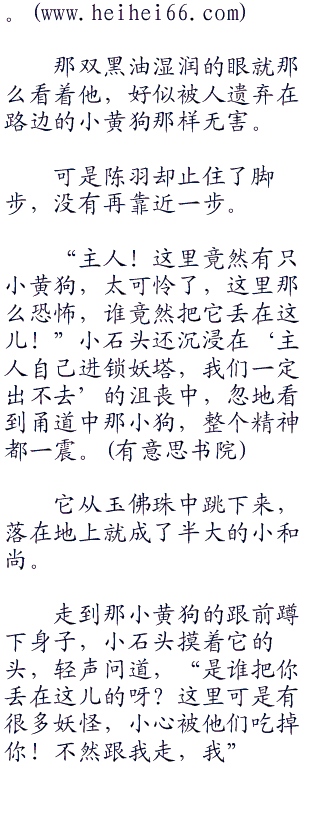 。(www.heihei66.com)
那双黑油湿润的眼就那
么看着他，好似被人遗弃在
路边的小黄狗那样无害。
可是陈羽却止住了脚
步，没有再靠近一步。
“主人！这里竟然有只
小黄狗，太可怜了，这里那
么恐怖，谁竟然把它丢在这
儿！”小石头还沉浸在‘主
人自己进锁妖塔，我们一定
出不去’的沮丧中，忽地看
到甬道中那小狗，整个精神
都一震。(有意思书院)
它从玉佛珠中跳下来，
落在地上就成了半大的小和
尚。
走到那小黄狗的跟前蹲
下身子，小石头摸着它的
头，轻声问道，“是谁把你
丢在这儿的呀？这里可是有
很多妖怪，小心被他们吃掉
你！不然跟我走，我”